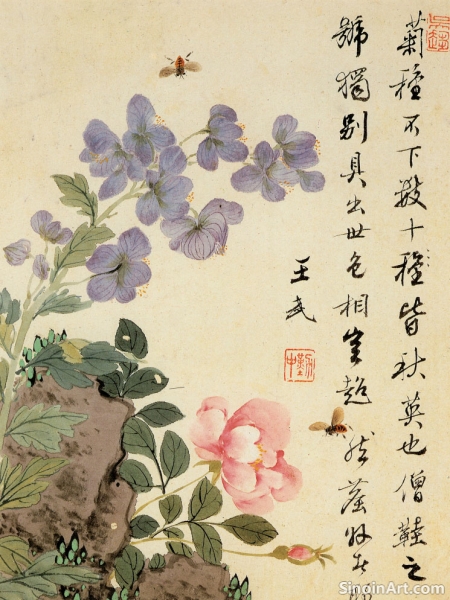 菊種不下數十種皆秋英也僧鞋之
號獨別具出世色相宜超然
王武
SinoinArt.com